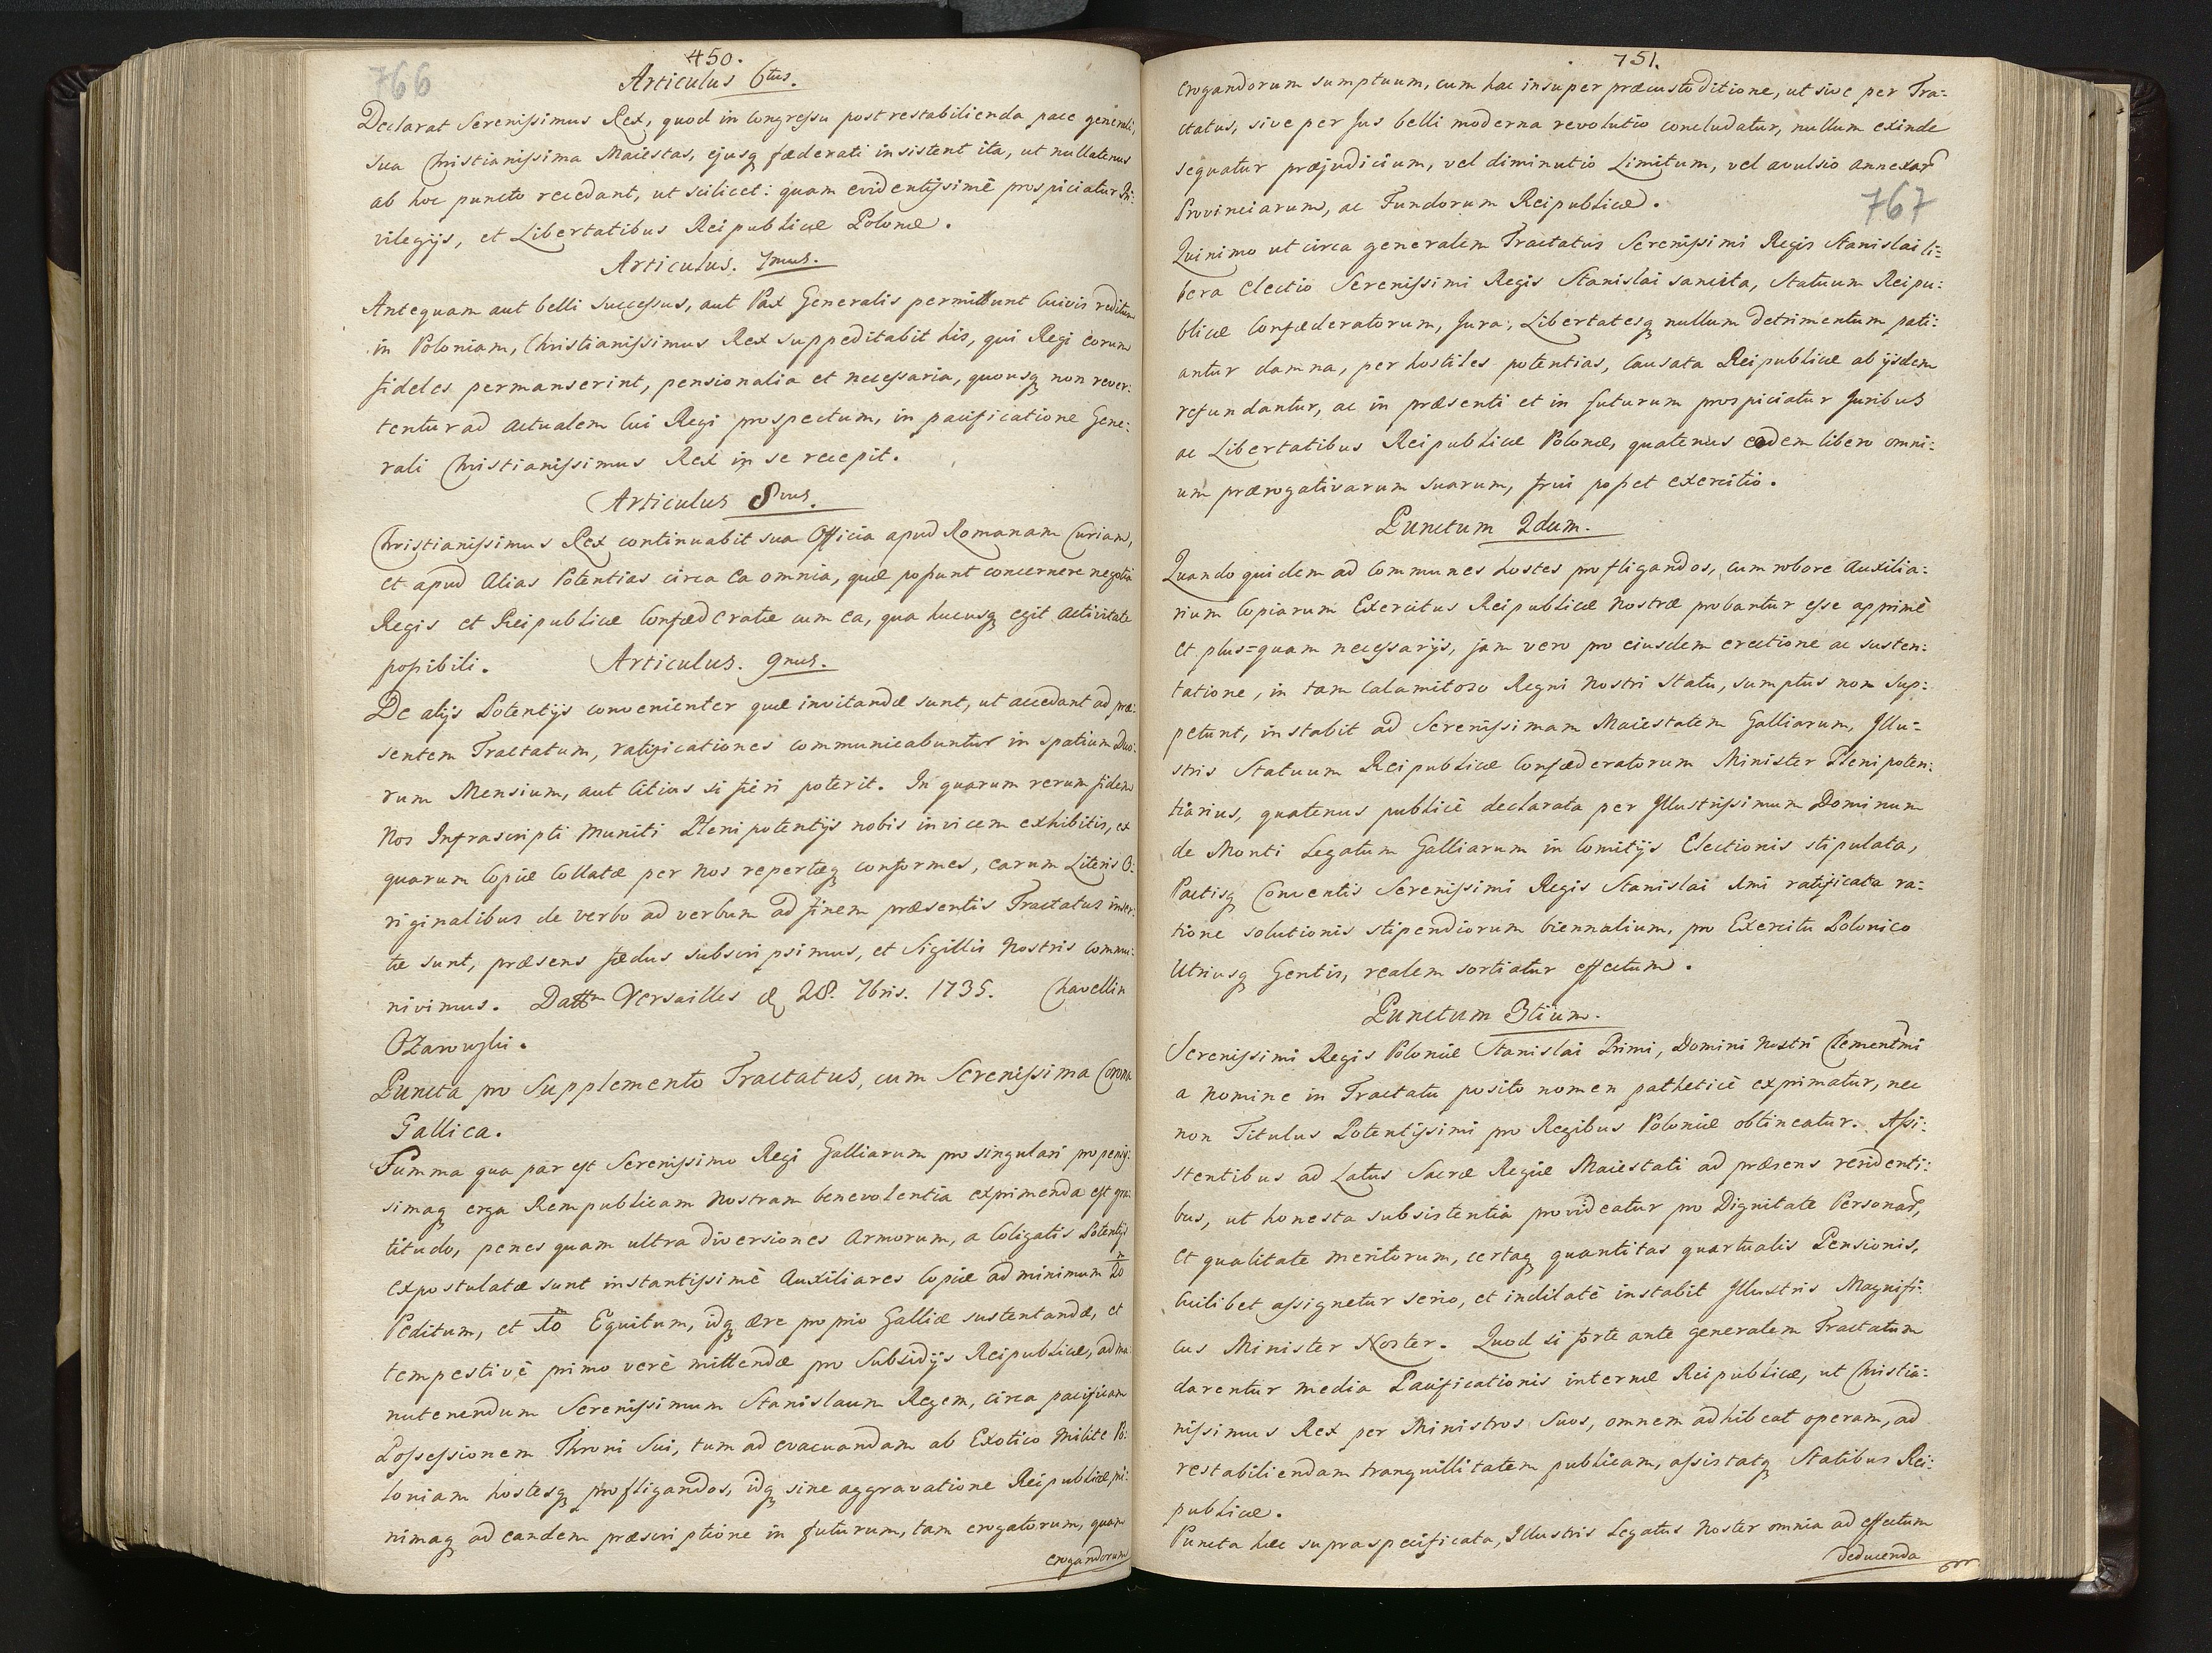 450.
766
Articulus 6tus.
Declarat Serenissimus Rex, quod in Congressu post restabilienda pace generali,
sua Christianissima Maiestas, ejusq fæderati insistent ita, ut nullatenus
ab hoc puncto recedant, ut scilicet: quam evidentissimè prospiciatur Pri:
vilegijs, et Libertatibus Reipublicæ Polonæ.
Articulus. 7mus.
Antequam aut belli successus, aut Pax Generalis permittunt Cuivis reditum
in Poloniam, Christianissimus Rex suppeditabit his, qui Regi eorum
fideles permanserint, pensionalia et necessaria, quousq non rever:
tentur ad actualem sui Regi prospectum, in pacificatione Gene:
rali Christianissimus Rex in se recepit.
Articulus 8vus.
Christianissimus Rex continuabit sua Officia apud Romanam Curiam,
et apud Alias Potentias circa Ea omnia, quæ possunt concernere negotia
Regis et Reipublicæ Confæderatæ cum ea, qua hucusq egit activitate
possibili.
Articulus. 9nus.
De alijs Potentijs convenienter quæ invitandæ sunt, ut accedant ad præ:
sentem Tractatum, ratificationes communicabuntur in spatium Duo:
rum Mensium, aut Citius si fieri poterit. In quarum rerum fidem
Nos Infrascripti muniti Plenipotentijs nobis invicem exhibitis, ex
quarum Copiæ Collatæ per nos repertæq conformes, earum Literis O:
riginalibus de verbo ad verbum ad finem præsentis Tractatus inser:
tæ sunt, præsens fædus subscripsimus, et Sigillis Nostris commu:
nivimus. Dattm Versailles 28. 7bris. 1735. Chavellin
Ożarowski.
Puncta pro Supplemento Tractatus, cum Serenissima Corona
Gallica.
Summa qua par est Serenissimo Regi Galliarum pro singulari propensis:
simaq erga Rempublicam Nostram benevolentia exprimenda est gra:
titudo, penes quam ultra diversiones Armorum, a Coligatis Potentijs
expostulatæ sunt instantissimè Auxiliares Copiæ ad minimum 20
Peditum, et Equitum, idq ære proprio Galliæ sustentandæ, et
tempestivè primo verè mittendæ pro Subsidijs Reipublicæ, ad ma:
nutenendum Serenissimum Stanislaum Regem, circa pacificam
Possessionem Throni Sui, tum ad evacuandam ab Exotico milite Po:
loniam hostesq profligandos, idq sine aggravatione Reipublicæ, mi:
nimaq ad eandem præscriptione in futurum, tam erogatorum, quam
erogandorum
751.
erogandorum sumptuum, cum hac insuper præcustoditione, ut sive per Tra:
ctatus, sive per Jus belli moderna revolutio concludatur, nullum exinde
sequatur præjudicium, vel diminutio Limitum, vel avulsio annexar
Provinciarum, ac Fundorum Reipublicæ.
767
Quinimo ut circa generalem Tractatus Serenissimi Regis Stanislai li:
bera Electio Serenissimi Regis Stanislai sancita, Statuum Reipu:
blicæ Confæderatorum, Jura, Libertatesq nullum detrimentum pati:
antur damna, per hostiles potentias, Causata Reipublicæ ab ijsdem
refundantur, ac in præsenti et in futurum prospiciatur Juribus
ac Libertatibus Reipublicæ Polonæ, quatenus eadem libero omni:
um prærogativarum suarum, frui posset exercitio.
Punctum 2dum.
Quandoquidem ad Communes hostes profligandos, cum robore Auxilia:
rium Copiarum Exercitus Reipublicæ nostræ probantur esse apprimè
et plus=quam necessarijs, jam vero pro eiusdem erectione ac susten:
tatione, in tam calamitoso Regni Nostri Statu, sumptus non sup:
petunt, instabit ad Serenissimam Maiestatem Galliarum, Illu=
stris Statuum Reipublicæ Confæderatorum Minister Plenipoten:
tiarius, quatenus publicè declarata per Illustrissimum Dominum
de Monti Legatum Galliarum in Comitijs Electionis stipulata,
Pactisq Conventis Serenissimi Regis Stanislai 1mi ratificata ra:
tione solutionis stipendiorum biennalium, pro Exercitu Polonico
Utriusq Gentis, realem sortiatur effectum.
Punctum 3tium.
Serenissimi Regis Poloniæ Stanislai Primi, Domini Nostri Clementmi
a nomine in Tractatu posito nomen patheticè exprimatur, nec
non Titulus Potentissimi pro Regibus Poloniæ obtineatur. Assi:
stentibus ad Latus Sacræ Regiæ Maiestati ad præsens residenti:
bus, ut honesta subsistentia provideatur pro Dignitate Personar,
et qualitate meritorum, certaq quantitas quartualis Pensionis,
Cuilibet assignetur serio, et indilatè instabit Illustris Magnifi:
cus Minister Noster. Quod si forte ante generalem Tractatum
darentur media Pacificationis internæ Reipublicæ, ut Christia:
nissimus Rex per Ministros Suos, omnem adhibeat operam, ad
restabiliendam tranquillitatem publicam, assistatq Statibus Rei:
publicæ.
Puncta hæc supraspecificata, Illustris Legatus Noster omnia ad effectum
deducenda